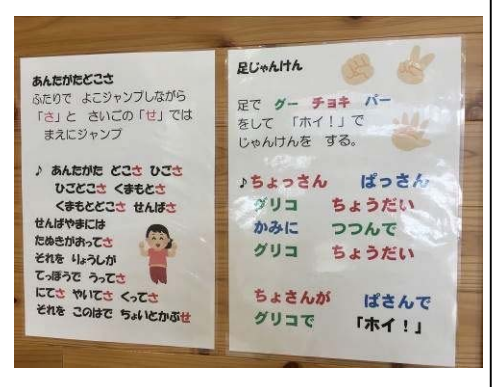 あんたがたどこさ
ふたりで よこジャンプしながら
「さ」と さいごの「せ」では
まえにジャンプ
♪ あんたがた どこさ ひごさ
ひごどこさ くまもとさ
くまもとどこさ せんばさ
せんばやまには
たぬきがおってさ
それを りょうしが
てっぽうで うってさ
にてさ やいてさ くってさ
それを このはで ちょいとかぶせ
足じゃんけん
足で グー チョキ パー
をして 「ホイ！」で
じゃんけんを する。
♪ちょっさん ぱっさん
グリコ ちょうだい
かみに つつんで
グリコ ちょうだい
ちょさんが ぱさんで
グリコで 「ホイ！」